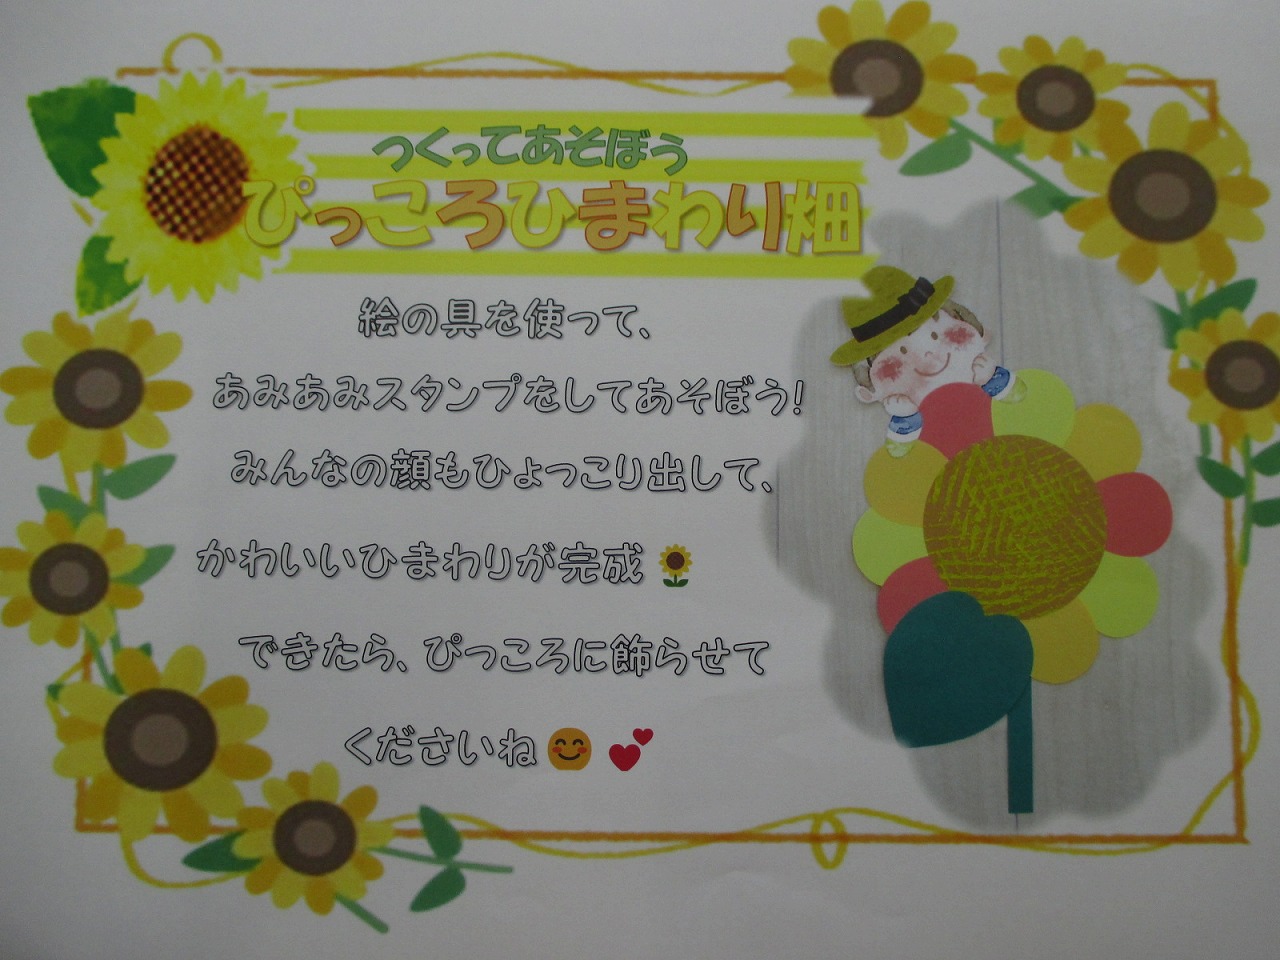 つくってあそぼう
ぴっころひまわり畑
絵の具を使って、
あみあみスタンプをしてあそぼう!
みんなの顔もひょっこり出して、
かわいいひまわりが完成🌻
できたら、ぴっころに飾らせて
くださいね😊💕